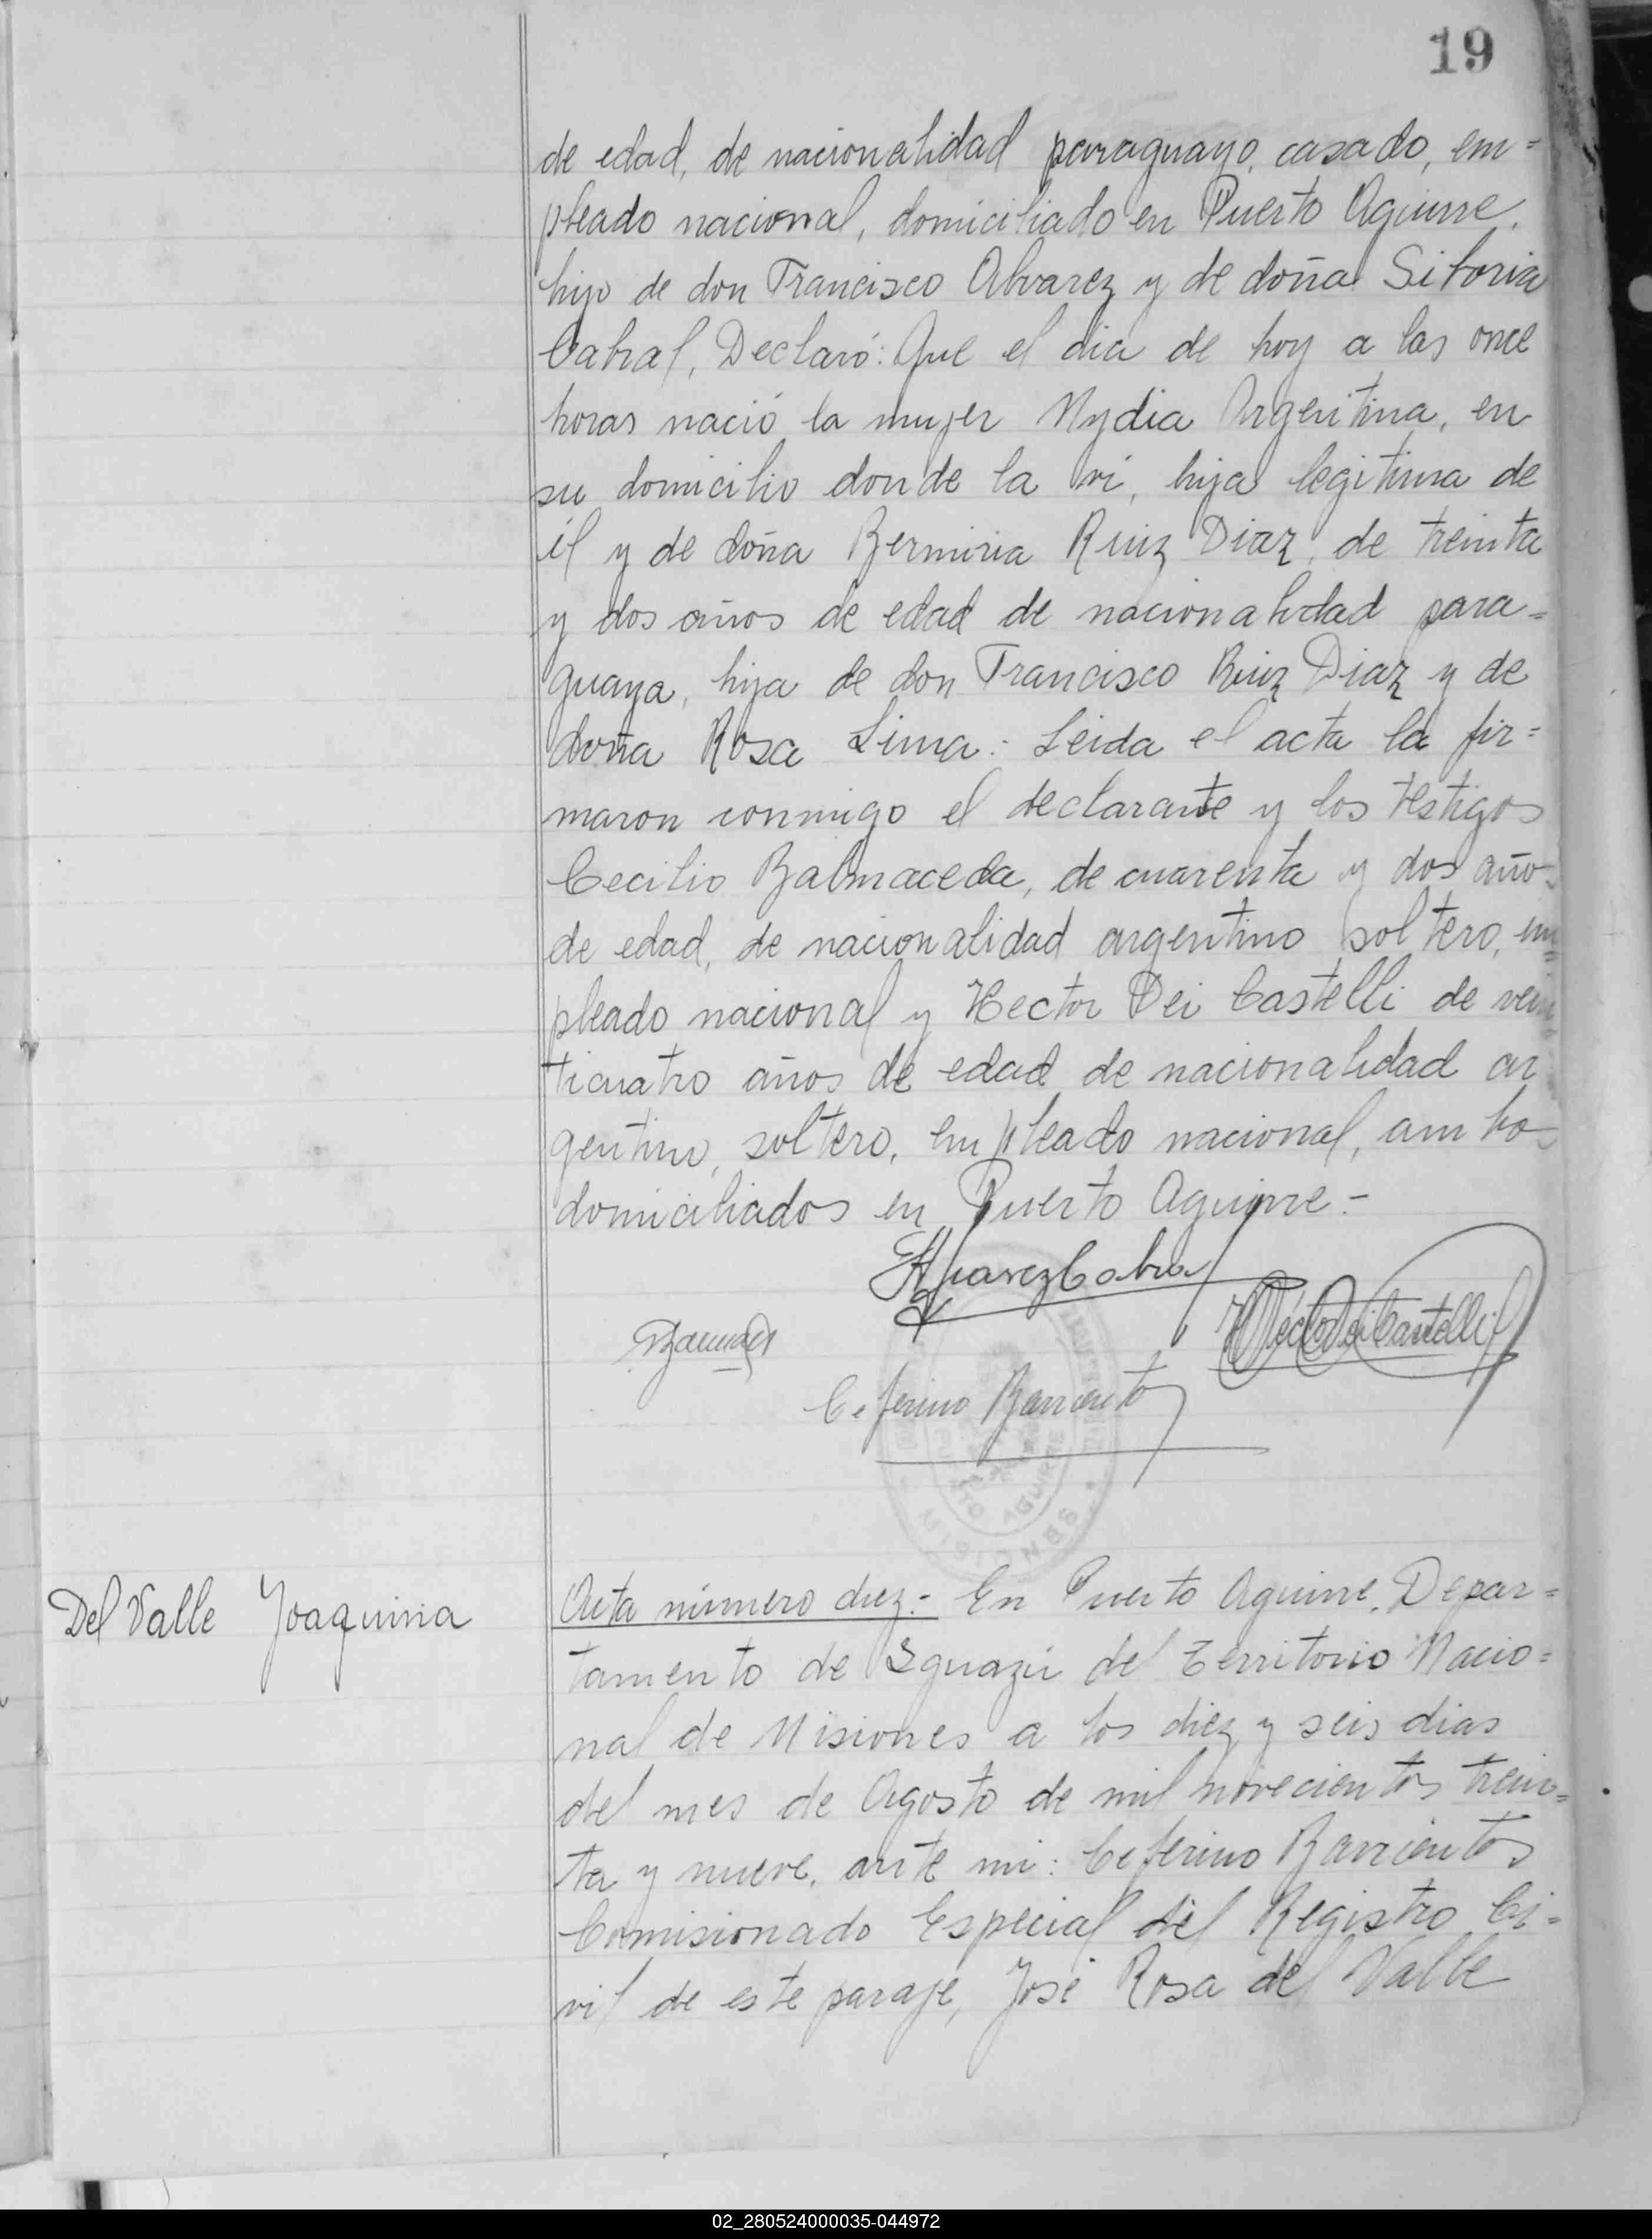 19
de edad, de nacionalidad paraguayo, casado, em=
pleado nacional, domiciliado en Puerto Aguirre,
hijo de don Francisco Alvarez y de doña
Cabral, Declaró: Que el dia de hoy a las once
horas nació la mujer Nydia Argentina, en
su domicilio donde la vi, hija legitima de
él y de doña Ruiz Diaz, de treinta
y dos años de edad de nacionalidad para=
guaya, hija de don Francisco Ruiz Diaz y de
doña Rosa Lima: Leida el acta la fir=
maron conmigo el declarante y los testigos
Cecilio Balmaceda, de cuarenta y dos año
de edad, de nacionalidad argentino soltero, em
pleado nacional y Hector Dei Castelli de vein
ticuatro años de edad de nacionalidad ar
gentino, soltero, empleado nacional, ambo
domiciliados en Puerto Aguirre.-
Alvarez Cabral
Héctor Dei Castelli
Ceferino Barrientos
AGUIRRE
MISIONES
Del Valle Joaquina
Acta número diez.- En Puerto Aguirre, Depar=
tamento de Iguazú del Territorio Nacio=
nal de Misiones a los diez y seis dias
del mes de Agosto de mil novecientos trein=
ta y nueve, ante mi: Ceferino Barrientos
Comisionado Especial del Registro Ci=
vil de este paraje, José Rosa del Valle
02_280524000035-044972